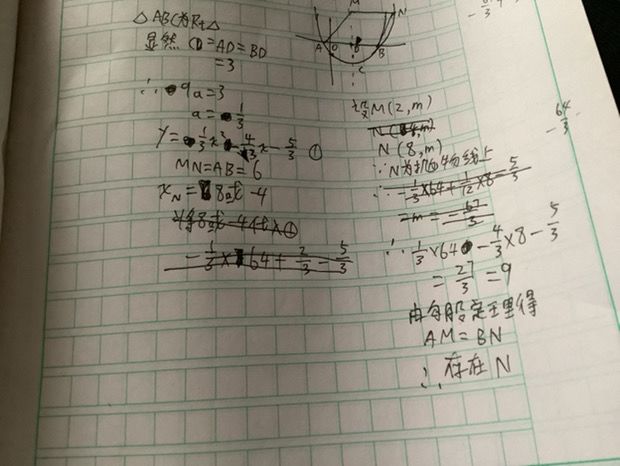 △ABC为Rt△
显然CD=AD=BD
=3
∴9a=3
a=1/3
y=1/3x²-4/3x-5/3 ①
MN=AB=6
x_N=8或-4
将8或-4代入①
-1/3×64+2/3-5/3
M N
A O B
C
设M(2,m)
N(8,m)
N(8,m)
∵N为抛物线上
-1/3×64+1/12×8-5/3
=m=-67/3
∴1/3×64-4/3×8-5/3
=27/3=9
由勾股定理得
AM=BN
∴存在N
-64/3